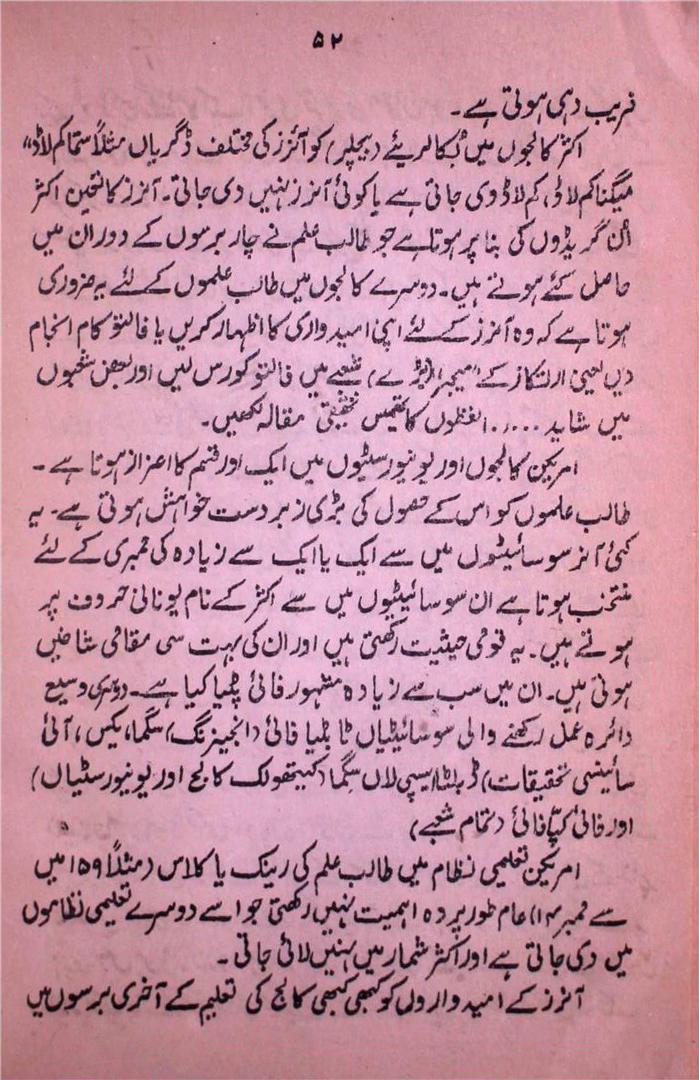 ۵۲
فریب دہی ہوتی ہے۔
اکثر کالجوں میں بکالریئے (بیچلر) کو آنرز کی مختلف ڈگریاں مثلاً سمّا کم لاڈ"
میگنا کم لاڈ، کم لاڈ دی جاتی ہے یا کوئی آنرز نہیں دی جاتی۔ آنرز کا تعین اکثر
ان گریڈوں کی بنا پر ہوتا ہے جو طالب علم نے چار برسوں کے دوران میں
حاصل کئے ہوتے ہیں۔ دوسرے کالجوں میں طالب علموں کے لئے یہ ضروری
ہوتا ہے کہ وہ آنرز کے لئے اپنی امیدواری کا اظہار کریں یا فالتو کام انجام
دیں یعنی ارتکاز کے "میجر" (بڑے) شعبے میں فالتو کورس لیں اور بعض شعبوں
میں شاید ..... الفظوں کا تھیسس تحقیقی مقالہ لکھیں۔
امریکن کالجوں اور یونیورسٹیوں میں ایک اور قسم کا اعزاز ہوتا ہے۔
طالب علموں کو اس کے حصول کی بڑی زبردست خواہش ہوتی ہے۔ یہ
کئی آنرز سوسائیٹیوں میں سے ایک یا ایک سے زیادہ کی ممبری کے لئے
منتخب ہوتا ہے ان سوسائیٹیوں میں سے اکثر کے نام یونانی حروف پر
ہوتے ہیں۔ یہ قومی حیثیت رکھتی ہیں اور ان کی بہت سی مقامی شاخیں
ہوتی ہیں۔ ان میں سب سے زیادہ مشہور فائی بٹیا کپا ہے۔ دوسری وسیع
دائرہ عمل رکھنے والی سوسائیٹیاں ٹا بٹیا فائی (انجینرنگ) سگما، یکس، آئی
سائینسی تحقیقات) ڈیلٹا ایپسی لاں سگما (کیتھولک کالج اور یونیورسٹیاں)
اور فائی کپّا فائی (تمام شعبے)
امریکن تعلیمی نظام میں طالب علم کی رینک یا کلاس (مثلاً ۱۵۹ میں
سے نمبر ۱۴) عام طور پر وہ اہمیت نہیں رکھتی جو اسے دوسرے تعلیمی نظاموں
میں دی جاتی ہے اور اکثر شمار میں نہیں لائی جاتی۔
آنرز کے امیدواروں کو کبھی کبھی کالج کی تعلیم کے آخری برسوں میں